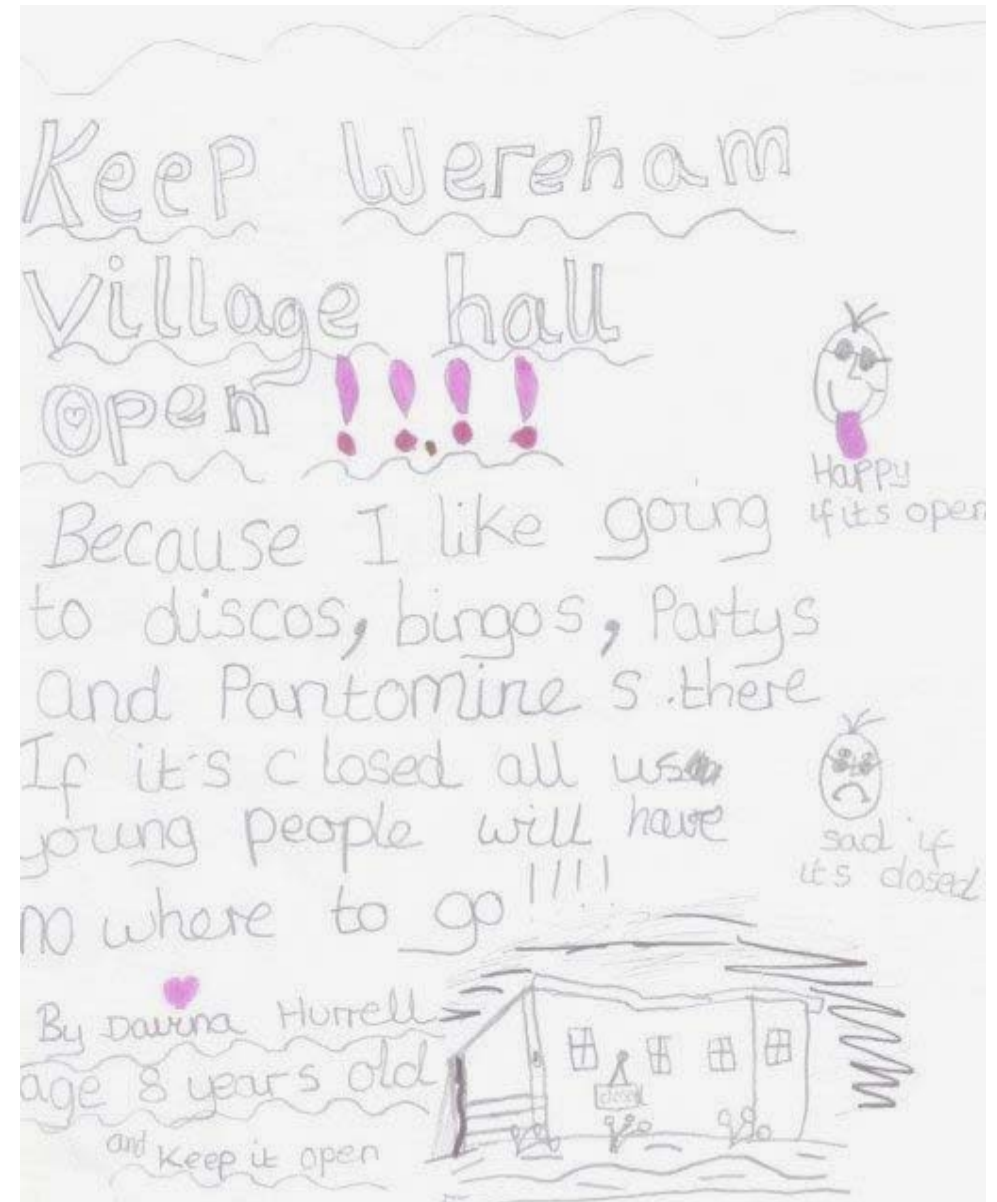 Keep Wereham
Village hall
open !!.!!
Happy
if its open
Because I like going
to discos, bingos, Partys
and Pantomine s.there
If it's closed all us
young people will have
no where to go !!!!
sad if
it's closed
By Davina Hurrell
age 8 years old
and Keep it open
closed